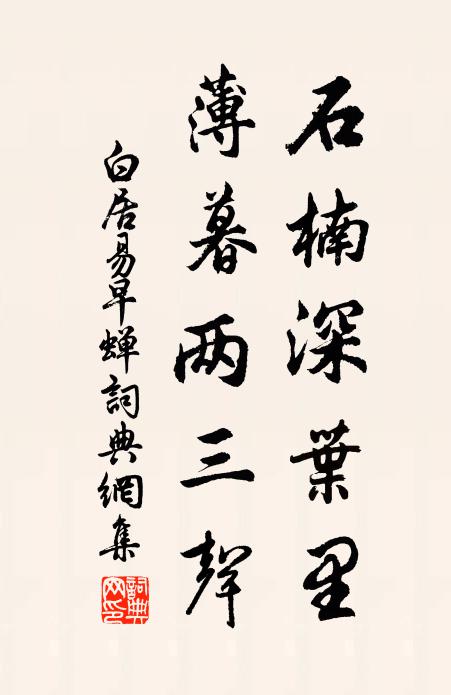 石楠深葉里
薄暮两三聲
白居易早蝉詞典網集
詞典網印